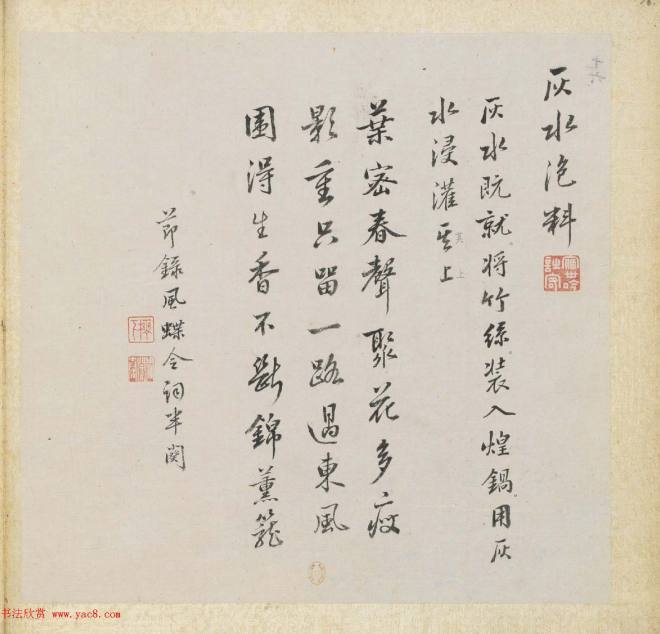 灰水泡料
灰水既就将竹絲装入煌鍋用灰
水浸灌其上
葉密春聲聚花多瘦
影重只留一路過東風
圍得生香不斷錦薰籠
節錄風蝶令詞半闋
书法欣赏 www.yac8.com